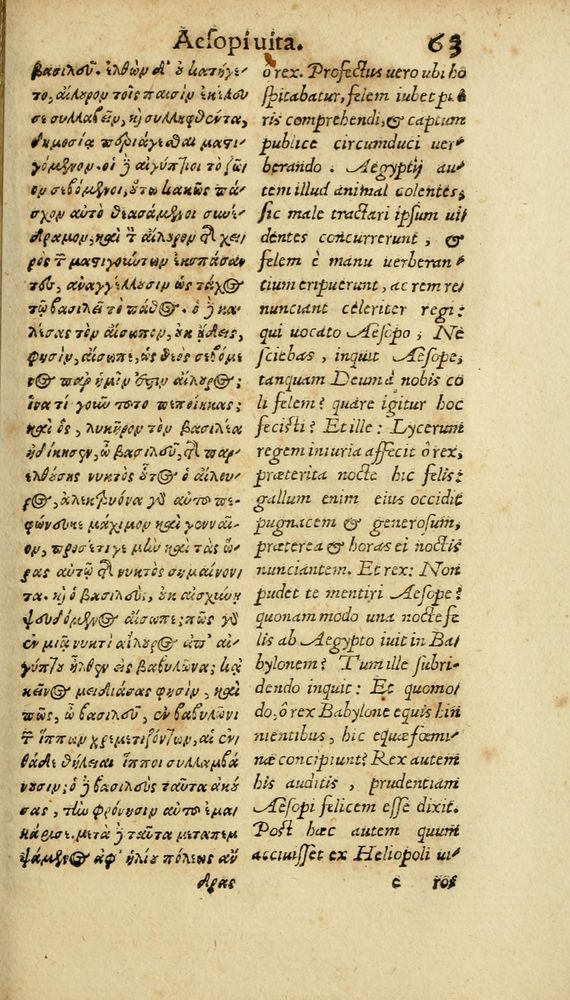 Aesopi vita. 63
βασιλεῦ. ἐλθὼν δ' οὗ κατήγε
το, αἴλουρον τοῖς παισὶν ἐκέλευ
σε συλλαβεῖν, καὶ συλληφθέντα,
δημοσίᾳ περιάγεσθαι μαστι-
γούμενον. οἱ δὲ αἰγύπτιοι τὸ ζῶ-
ον σεβόμενοι, οὕτω κακῶς πά-
σχον αὐτὸ θεασάμενοι συνέ-
δραμον, καὶ τὸν αἴλουρον ἐκ χει
ρὸς τῶν μαστιγούντων ἐκσπάσαν
τες, ἀναγγέλλουσιν ὡς τάχος
τῷ βασιλεῖ τὸ πάθος. ὁ δὲ κα-
λέσας τὸν αἴσωπον, οὐκ ᾔδεις,
φησὶν, αἴσωπε, ὡς θεὸς σεβόμε
νος παρ' ἡμῖν ἐστιν αἴλουρος;
ἱνατί γοῦν τοῦτο πεποίηκας;
καὶ ὃς, λυκῆρον τὸν βασιλέα
ἠδίκησεν, ὦ βασιλεῦ, τῆς παρ-
ελθούσης νυκτὸς οὗτος ὁ αἴλου-
ρος, ἀλεκτρυόνα γὰρ αὐτοῦ πε-
φώνευκε μάχιμον καὶ γενναῖ-
ον, προσέτι γε μὴν καὶ τὰς ὥ-
ρας αὐτῷ τῆς νυκτὸς σημαίνον
τα. καὶ ὁ βασιλεὺς, οὐκ αἰσχύνῃ
ψευδόμενος αἴσωπε; πῶς γὰρ
ἐν μιᾷ νυκτὶ αἴλουρος ἀπ' αἰ-
γύπτου ἦλθεν εἰς βαβυλῶνα; κἀ
κεῖνος μειδιάσας φησὶν, καὶ
πῶς, ὦ βασιλεῦ, ἐν βαβυλῶνι
τῶν ἵππων χρεμετιζόντων, αἱ ἐν
θάδε θήλειαι ἵπποι συλλαμβά
νουσιν; ὁ δὲ βασιλεὺς ταῦτα ἀκού
σας, τὴν φρόνησιν αὐτοῦ ἐμα-
κάρισε. μετὰ δὲ ταῦτα μεταπεμ
ψάμενος ἀφ' ἡλίου πόλεως ἄν
δρας
ô rex. Profectus vero ubi ho
spitabatur, felem iubet pue
ris comprehendi, & captum
publice circumduci ver-
berando. Aegyptij au-
tem illud animal colentes,
sic male tractari ipsum vi
dentes concurrerunt, &
felem è manu verberan-
tium eripuerunt, ac rem re-
nunciant celeriter regi:
qui vocato Aesopo, Ne
sciebas, inquit Aesope,
tanquam Deum à nobis co
li felem? quare igitur hoc
fecisti? Et ille: Lycerum
regem iniuria affecit ô rex,
præterita nocte hic felis:
gallum enim eius occidit
pugnacem & generosum,
præterea & horas ei noctis
nunciantem. Et rex: Non
pudet te mentiri Aesope?
quonam modo una nocte fe
lis ab Aegypto ivit in Ba
bylonem? Tum ille subri-
dendo inquit: Et quomo
do, ô rex Babylone equis hin
nientibus, hic equæ fœmi-
næ concipiunt? Rex autem
his auditis, prudentiam
Aesopi felicem esse dixit.
Post hæc autem quum
accivisset ex Heliopoli vi-
c ros